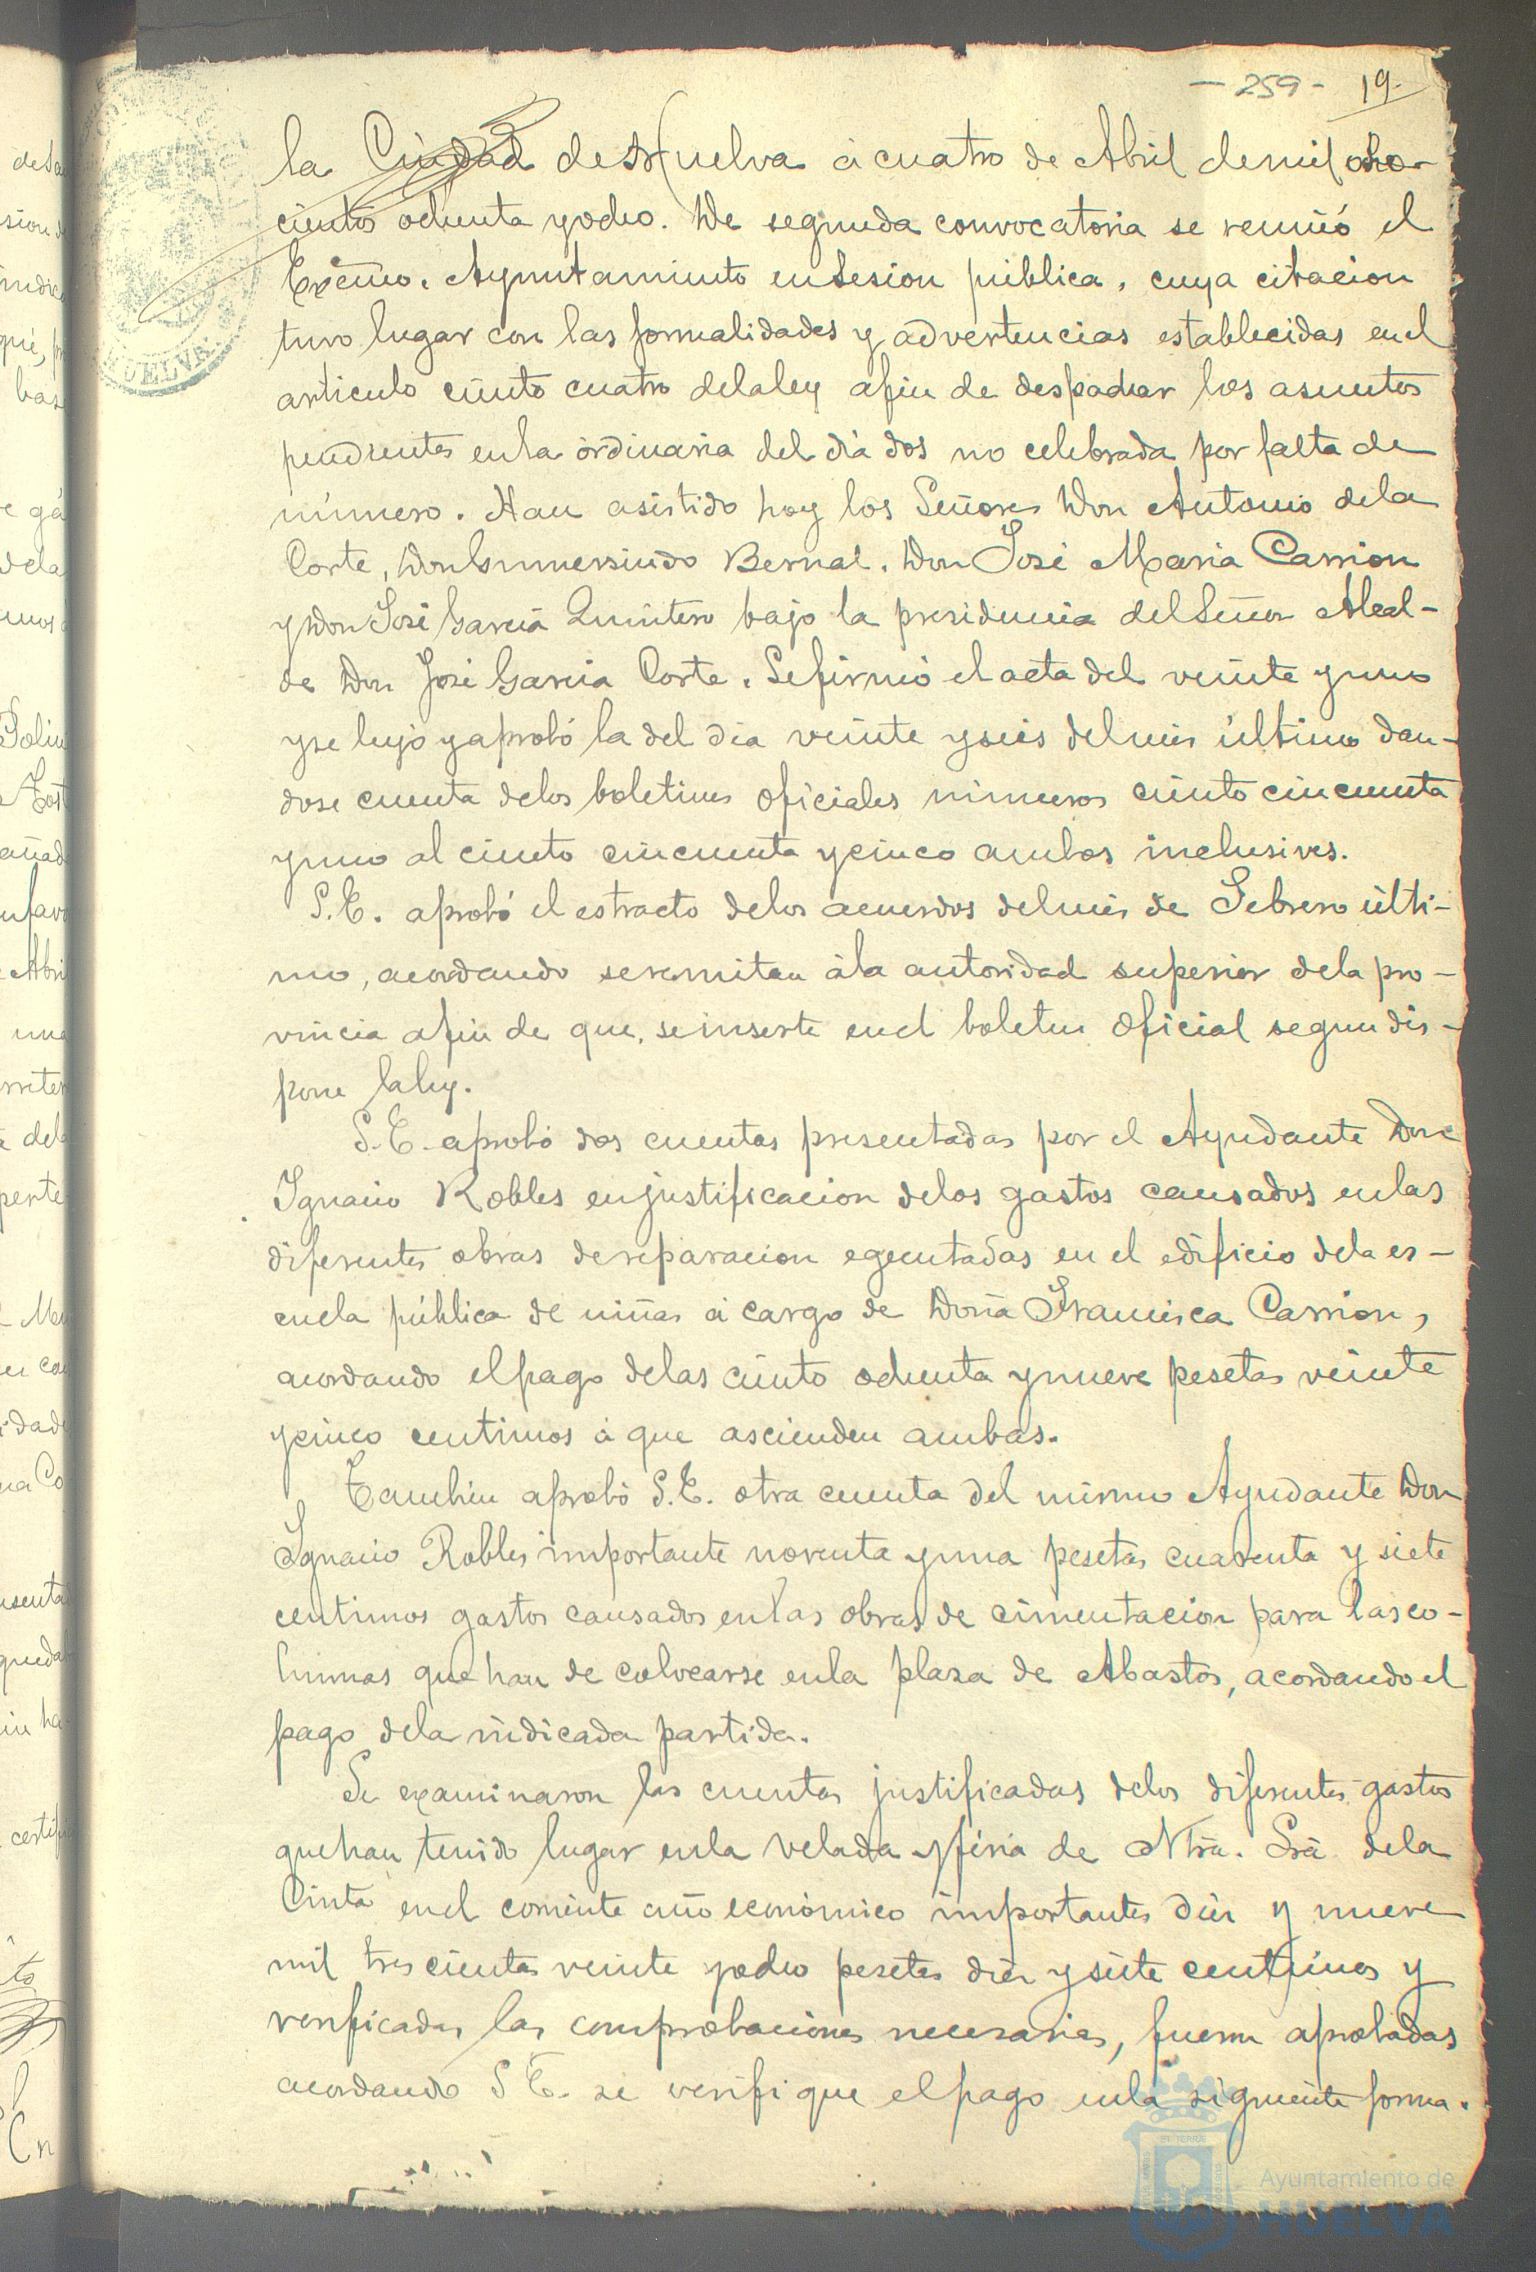 - 259 - 19.
la Ciudad de Huelva á cuatro de Abril de mil ocho-
cientos ochenta y ocho. De segunda convocatoria se reunió el
Excmo. Ayuntamiento en Sesion pública, cuya citacion
tuvo lugar con las formalidades y advertencias establecidas en el
articulo ciento cuatro de la ley afin de despachar los asuntos
pendientes en la ordinaria del dia dos no celebrada por falta de
número. Han asistido hoy los Señores Don Antonio de la
Corte, Don Gumersindo Bernal. Don José Maria Carrion
y Don José Garcia Quintero bajo la presidencia del Señor Alcal-
de Don José Garcia Corte. Se firmó el acta del veinte y uno
y se leyó y aprobó la del dia veinte y seis del mes último dan-
dose cuenta de los boletines oficiales números ciento cincuenta
y uno al ciento cincuenta y cinco ambos inclusives.
S.E. aprobó el estracto de los acuerdos del mes de Febrero últi-
mo, acordando se remitan á la autoridad superior de la pro-
vincia afin de que se inserte en el boletin oficial segun dis-
pone la ley.
S.E. aprobó dos cuentas presentadas por el Ayudante Don
Ignacio Robles en justificacion de los gastos causados en las
diferentes obras de reparacion egecutadas en el edificio de la es-
cuela pública de niñas á cargo de Doña Francisca Carrion,
acordando el pago de las ciento ochenta y nueve pesetas veinte
y cinco centimos á que ascienden ambas.
Tambien aprobó S.E. otra cuenta del mismo Ayudante Don
Ignacio Robles importante noventa y una pesetas cuarenta y siete
centimos gastos causados en las obras de cimentacion para las co-
lumnas que han de colocarse en la plaza de Abastos, acordando el
pago de la indicada partida.
Se examinaron las cuentas justificadas de los diferentes gastos
que han tenido lugar en la velada y féria de Ntra. Sra de la
Cinta en el corriente año económico importantes diez y nueve
mil trescientas veinte y ocho pesetas diez y siete centimos y
verificadas las comprobaciones necesarias, fueron aprobadas
acordando S.E. se verifique el pago en la siguiente forma.
HUELVA.
Ayuntamiento de
HUELVA